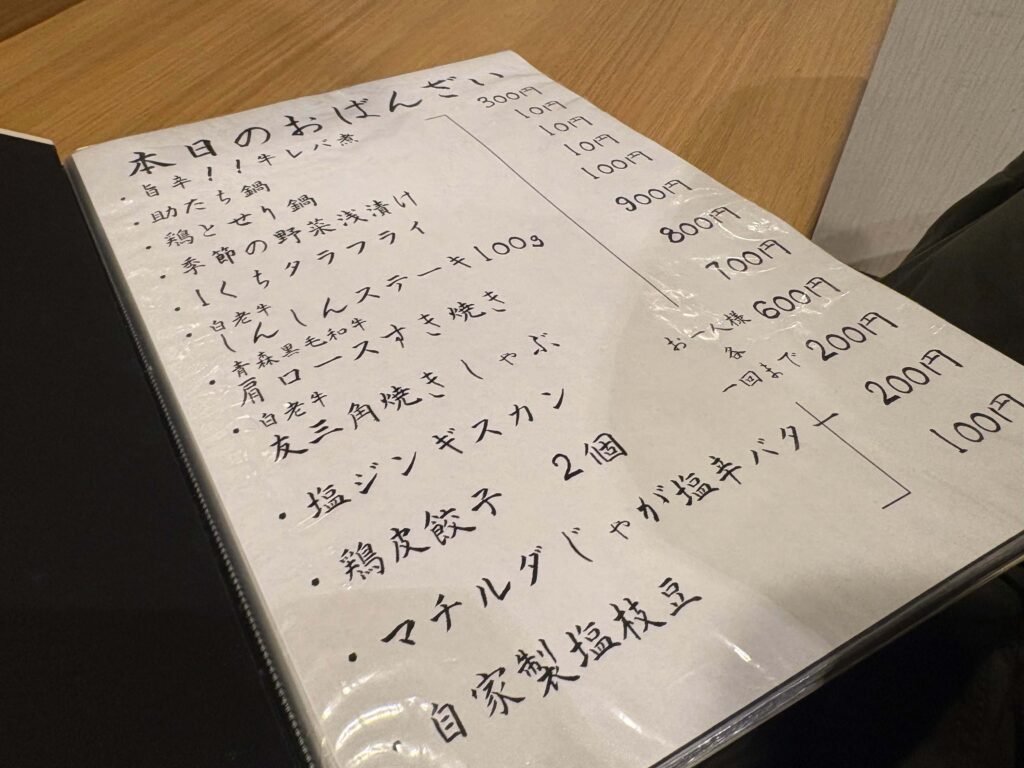 本日のおばんざい
・旨辛!!牛レバ煮 300円
・助たち鍋 10円
・鶏とせり鍋 10円
・季節の野菜浅漬け 10円
・1くちタラフライ 100円
・白老牛
しんしんステーキ100g 900円
・青森黒毛和牛
肩ロースすき焼き 800円
・白老牛
友三角焼きしゃぶ 700円
・塩ジンギスカン 600円
・鶏皮餃子 2個 200円
・マチルダじゃが塩辛バタ 200円
・自家製塩枝豆 100円
お一人様
各
一回まで